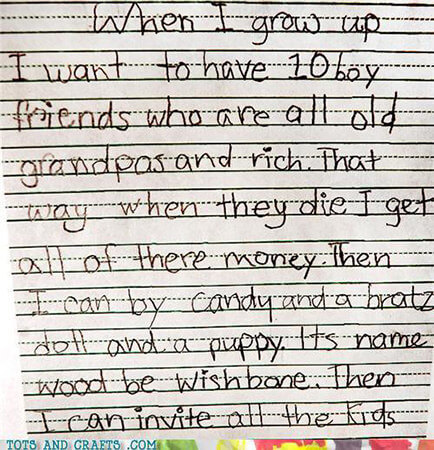 When I grow up
I want to have 10 boy
friends who are all old
grandpas and rich. That
way when they die I get
all of there money. Then
I can by candy and a bratz
doll and a puppy. Its name
wood be wishbone. Then
I can invite all the kids
TOTS AND CRAFTS .COM